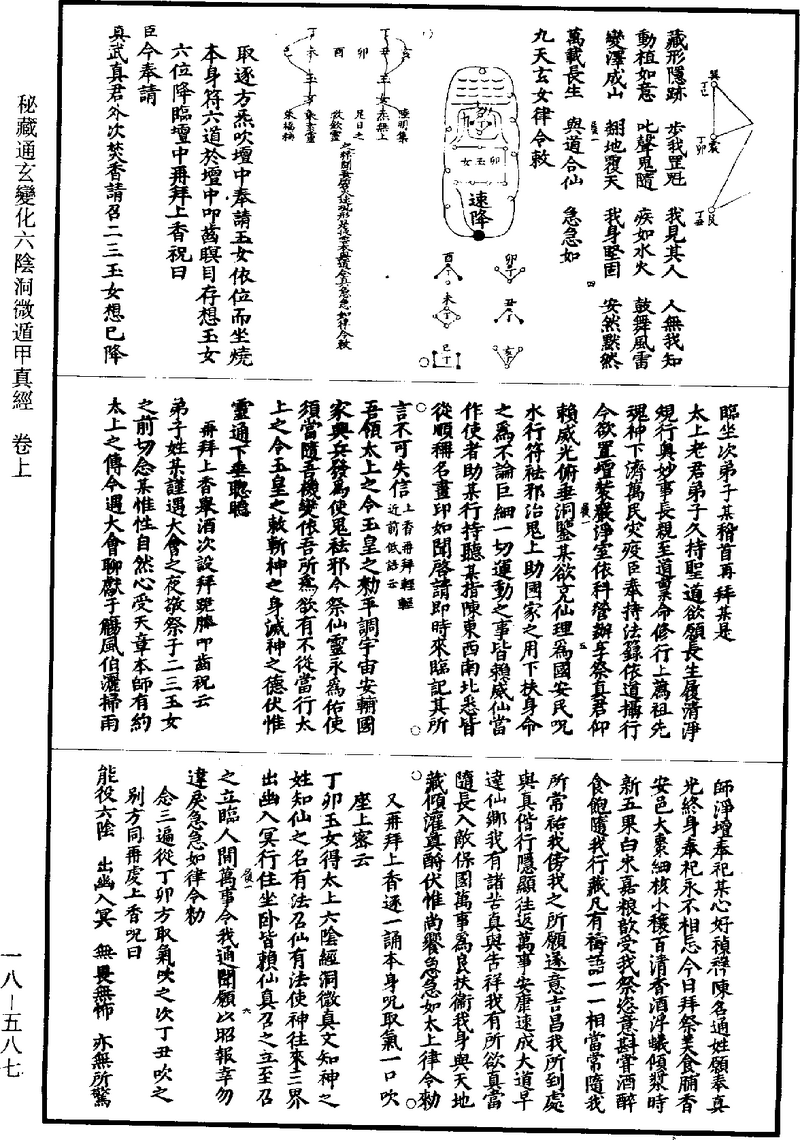 藏形隱跡　步我罡魁　我見其人　人無我知
動植如意　叱聲鬼隨　疾如水火　鼓舞風雷
變澤成山　翻地覆天　我身堅固　安然默然
萬載長生　與道合仙　急急如
九天玄女律令敕
巽
丁巳
震
丁卯
艮
丁丑
速降
卯玉女
卯
丑
亥
酉
未
巳
取逐方炁吹壇中奉請玉女依位而坐燒
本身符六道於壇中叩齒瞑目存想玉女
六位降臨壇中再拜上香祝曰
臣今奉請
真武真君外次焚香請召二三玉女想已降
臨坐次弟子某稽首再拜某是
太上老君弟子久持聖道欲願長生履清淨
規行與妙事長親至道業命修行上薦祖先
魂神下濟萬民灾疫臣奉持法籙依道攝行
今欲置壇裝嚴淨室依科營辦享祭真君仰
賴威光俯垂洞鑒某欲克仙理為國安民呪
水行符祛邪治鬼上助國家之用下扶身命
之為不論巨細一切運動之事皆賴威仙當
作使者助某行持聽某指陳東西南北悉皆
從順稱名畫印如聞啓請即時來臨記其所
言不可失信上香再拜輕輕近前低語云
吾領太上之令玉皇之勑平調宇宙安輔國
家興兵發馬使鬼祛邪今祭仙靈永為佑使
須當隨吾機變依吾所為欲有不從當行太
上之令玉皇之敕斬神之身滅神之德伏惟
靈通下垂聰聽
再拜上香舉酒次設拜跪膝叩齒祝云
弟子姓某謹遇大會之夜敬祭于二三玉女
之前切念某惟性自然心受天章本師有約
太上之傳今遇大會聊獻于觴風伯灑掃雨
師淨壇奉祀某心好禎祥陳名通姓願奉真
光終身奉祀永不相忘今日拜祭美食脯香
安邑大棗細核小穰百清香酒浮蟻傾漿時
新五果白米嘉粮歆受我祭恣意斟嘗酒醉
食飽隨我行藏凡有禱語一一相當常隨我
所常祐我傍我之所願遂意吉昌我所到處
與真偕行隱顯往返萬事安康速成大道早
達仙鄉我有諸苦真與告祥我有所欲真當
隨長入敵保國萬事為良扶衞我身與天地
藏傾灌奠酹伏惟尚饗急急如太上律令勑
又再拜上香逐一誦本身呪取氣一口吹
座上密云
丁卯玉女得太上六陰經洞微真文知神之
姓知仙之名有法召仙有法使神往來三界
出幽入冥行住坐卧皆賴仙真召之立至召
之立臨人間萬事令我通聞願以昭報幸勿
違戾急急如律令勑
念三遍從丁卯方取氣吹之次丁丑吹之
別方同再處上香呪曰
能役六陰　出幽入冥　無畏無怖　亦無所驚
秘藏通玄變化六陰洞微遁甲真經　卷上
一八－五八七